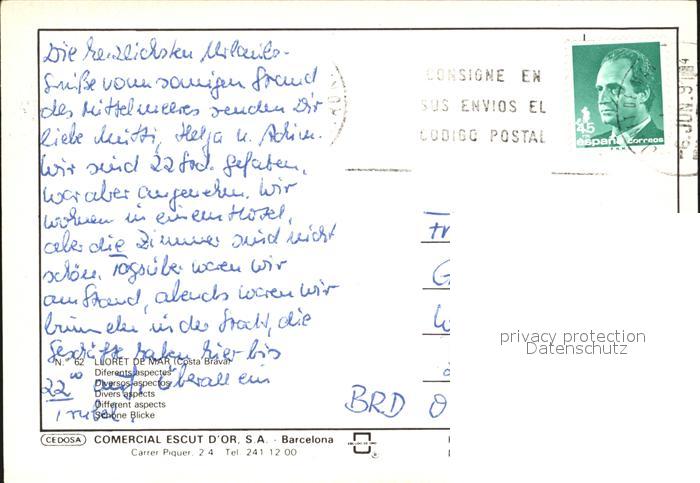 Die herzlichsten Urlaubs-
Grüße vom sonnigen Strand
des Mittelmeeres senden Dir
liebe Mutti, Helga u. Achim.
Wir sind 22 Std. gefahren,
war aber angenehm. Wir
wohnen in einem Hotel,
aber die Zimmer sind nicht
schön. Tagsüber waren wir
am Strand, abends waren wir
bummeln in der Stadt, die
Geschäfte haben hier bis
22 00 auf. Überall ein
Trubel.
CONSIGNE EN
SUS ENVIOS EL
CODIGO POSTAL
45
españa correos
JUN. 91
BRD
N.° 62 LLORET DE MAR (Costa Brava)
Diferents aspectes
Diversos aspectos
Divers aspects
Different aspects
Schöne Blicke
CEDOSA COMERCIAL ESCUT D'OR, S.A. - Barcelona
Carrer Piquer, 2 4 Tel. 241 12 00
privacy protection
Datenschutz